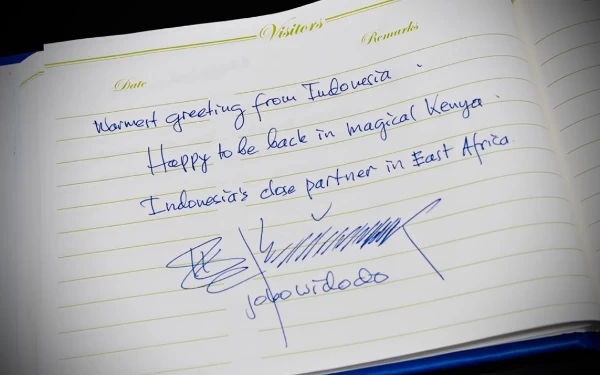 Visitors
Date
Remarks
Warmest greeting from Indonesia.
Happy to be back in magical Kenya.
Indonesia's close partner in East Africa
joko widodo